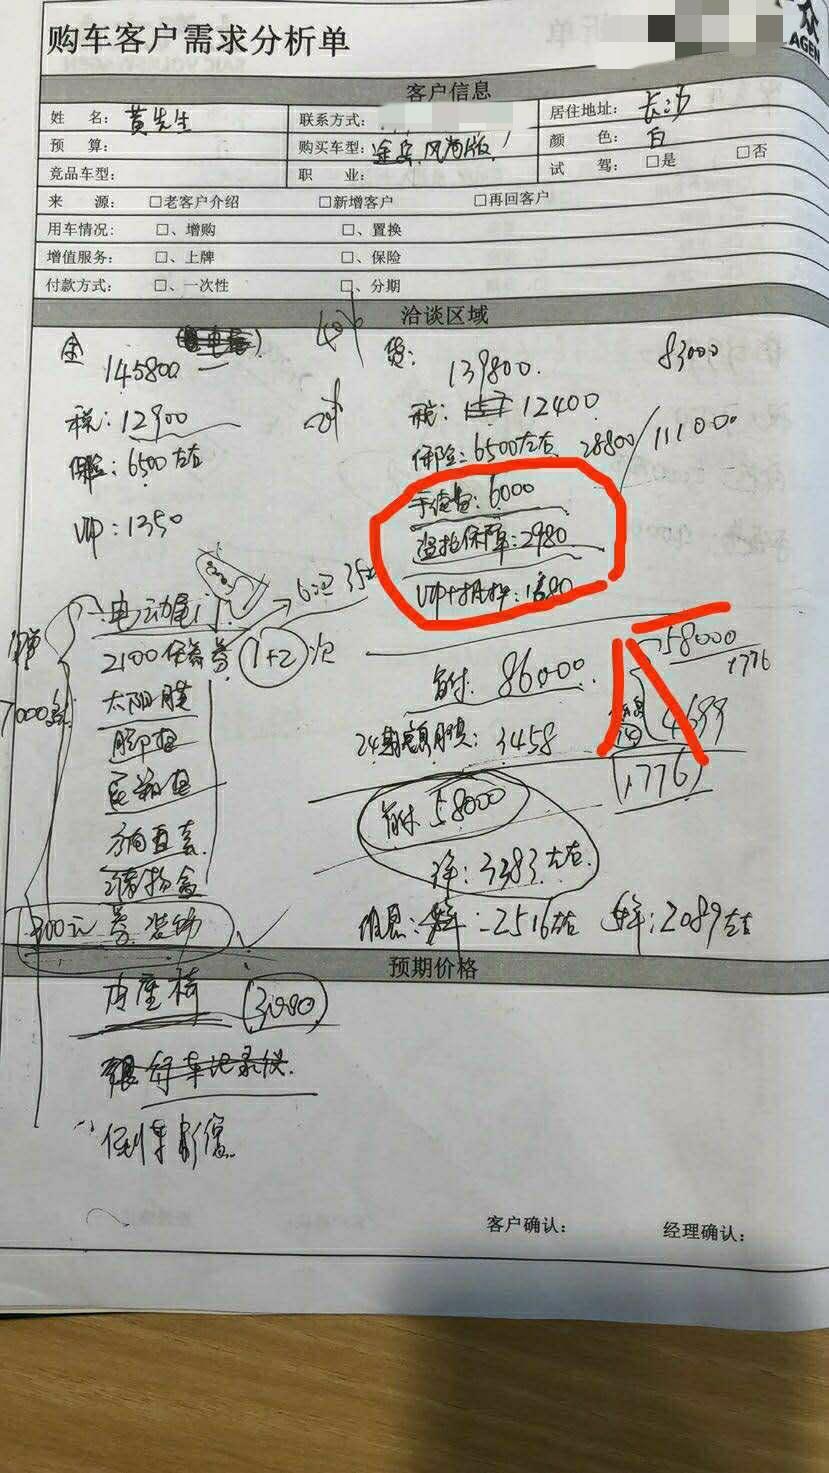 众
AGEN
购车客户需求分析单
客户信息
姓 名： 黄先生 联系方式： 居住地址： 长沙
预 算： 购买车型： 途岳风尚版！ 颜 色： 白
竞品车型： 职 业： 试 驾： □是 □否
来 源： □老客户介绍 □新增客户 □再回客户
用车情况： □、增购 □、置换
增值服务： □、上牌 □、保险
付款方式： □、一次性 □、分期
洽谈区域
全 40% 贷： 83000
145800 139800.
税：12900 税： 12400
保险：6500左右 保险：6500左右 28800 111000
VIP：1350 手续费：6000
盗抢保障：2980
电动尾门
2100保养券 1+2次
太阳膜 首付 86000 58000
1776
脚垫 24期 月供：3458 4699
1776
尾箱垫 首付 58000
方向盘套 3383左右
储物盒
300元 装饰 2516左右 2089左右
预期价格
内座椅 3080
行车记录仪
倒车影像
客户确认： 经理确认：